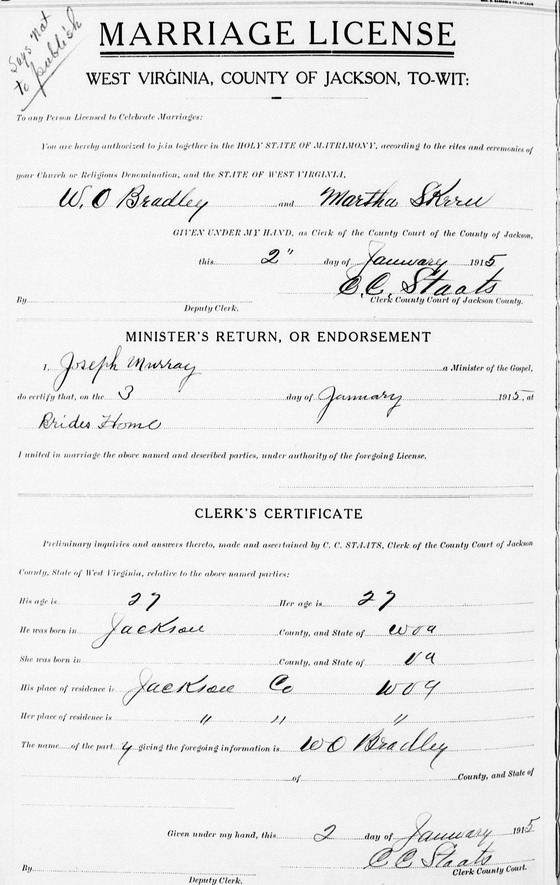 Says not
to publish
MARRIAGE LICENSE
WEST VIRGINIA, COUNTY OF JACKSON, TO-WIT:
To any Person Licensed to Celebrate Marriages:
You are hereby authorized to join together in the HOLY STATE OF MATRIMONY, according to the rites and ceremonies of
your Church or Religious Denomination, and the STATE OF WEST VIRGINIA,
W. O Bradley and Martha
GIVEN UNDER MY HAND, as Clerk of the County Court of the County of Jackson,
this 2" day of January 1915
C. C. Staats
By Clerk County Court of Jackson County.
Deputy Clerk.
MINISTER'S RETURN, OR ENDORSEMENT
I, Joseph Murray a Minister of the Gospel,
do certify that, on the 3 day of January 1915, at
Brides Home
I united in marriage the above named and described parties, under authority of the foregoing License.
CLERK'S CERTIFICATE
Preliminary inquiries and answers thereto, made and ascertained by C. C. STAATS, Clerk of the County Court of Jackson
County, State of West Virginia, relative to the above named parties:
His age is 27 Her age is 27
He was born in Jackson County, and State of W Va
She was born in County, and State of Va
His place of residence is Jackson Co W Va
Her place of residence is " " "
The name of the party giving the foregoing information is W O Bradley
of County, and State of
Given under my hand, this 2 day of January 1915
C C Staats
By Clerk County Court.
Deputy Clerk.